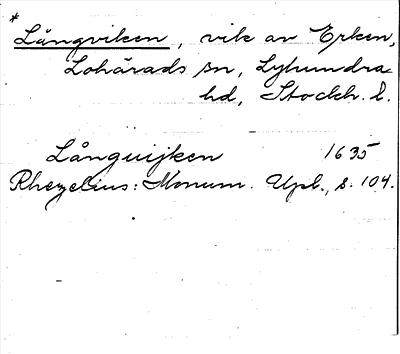 *
Långviken, vik av Erken,
Lohärads sn, Lyhundra
hd, Stockh. l.
Långuijken 1635
Rhezelius: Monum. Upl., s. 104.